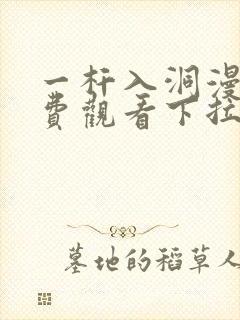 一杆入洞漫
費觀看下拉
墓地的稻草人